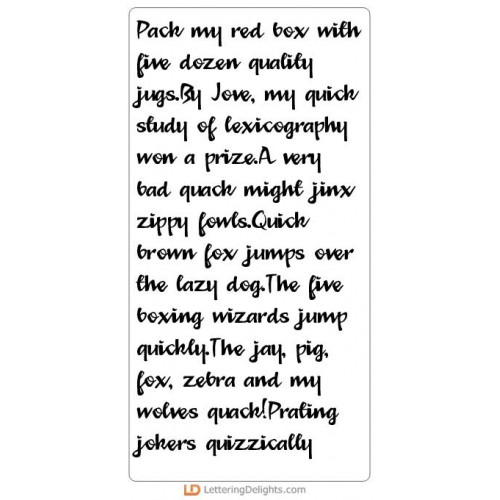 Pack my red box with
five dozen quality
jugs.By Jove, my quick
study of lexicography
won a prize.A very
bad quack might jinx
zippy fowls.Quick
brown fox jumps over
the lazy dog.The five
boxing wizards jump
quickly.The jay, pig,
fox, zebra and my
wolves quack!Prating
jokers quizzically
LD LetteringDelights.com